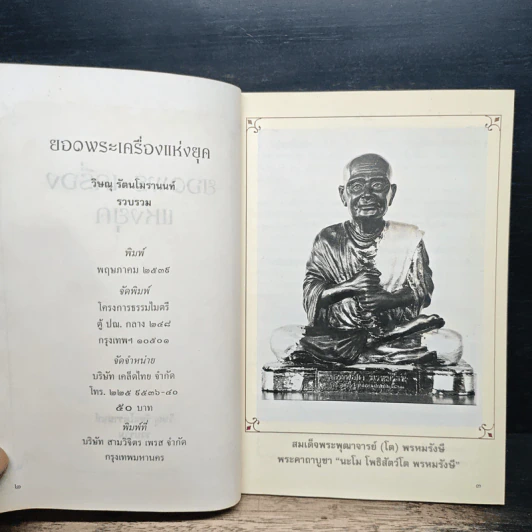 ยอดพระเครื่องแห่งยุค
วิษณุ รัตนโมรานนท์
รวบรวม
พิมพ์
พฤษภาคม ๒๕๓๙
จัดพิมพ์
โครงการธรรมไมตรี
ตู้ ปณ. กลาง ๒๔๘
กรุงเทพฯ ๑๐๕๐๑
จัดจำหน่าย
บริษัท เคล็ดไทย จำกัด
โทร. ๒๒๕ ๙๕๓๖-๔๐
๕๐ บาท
พิมพ์ที่
บริษัท สามวิจิตร เพรส จำกัด
กรุงเทพมหานคร
๒
สมเด็จพระพุฒาจารย์ (โต) พรหมรังษี
พระคาถาบูชา "นะโม โพธิสัตว์โต พรหมรังษี"
๓